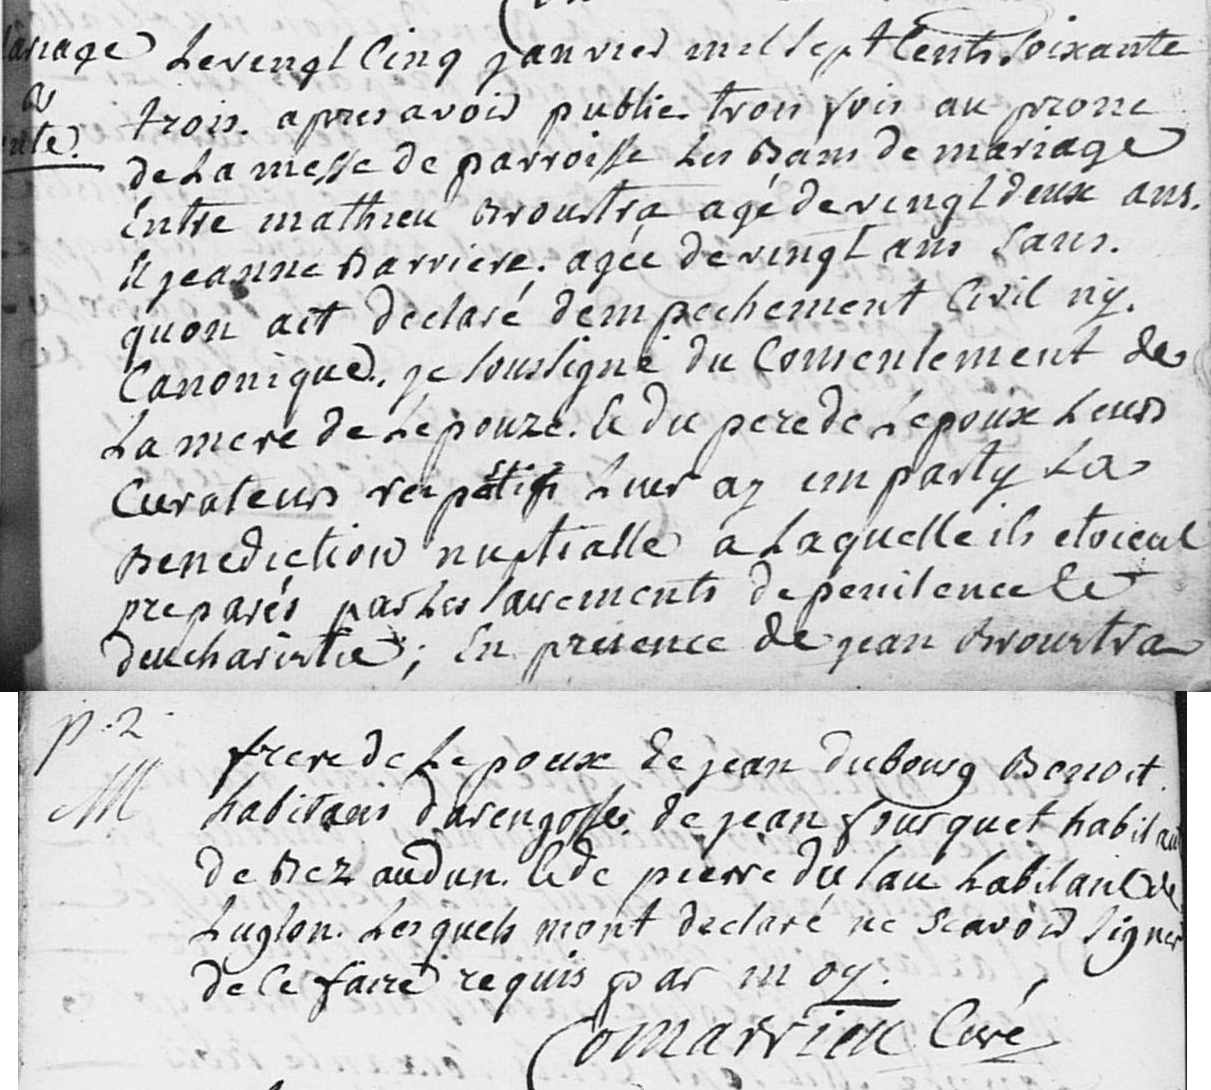 mariage Le vingt Cinq janvier mil sept Cents soixante
trois. apres avoir publie trois fois au prone
de La messe de parroisse Les Bans de mariage
Entre mathieu Broustra agé de vingt deux ans.
Et jeanne Barriere. agée de vingt ans sans.
quon ait declaré dempechement Civil ny.
Canonique. je soussigné du Consentement de
La mere de L'epouze. Et du pere de Lepoux Leurs
Curateurs respectifs Leur ay imparty La
Benediction nuptialle a Laquelle ils etoient
preparés par Les sacrements de penitence Et
deucharistie; En presence de jean Broustra
p. 2
M
frere de Lepoux de jean dubourg Benoit.
habitans darengosse. de jean fourquet habitant
de Bezaudun. Et de pierre du Lau habitant de
Luglon. Lesquels mont declaré ne scavoir signer
de ce faire requis par moy.
Comarrieu Curé